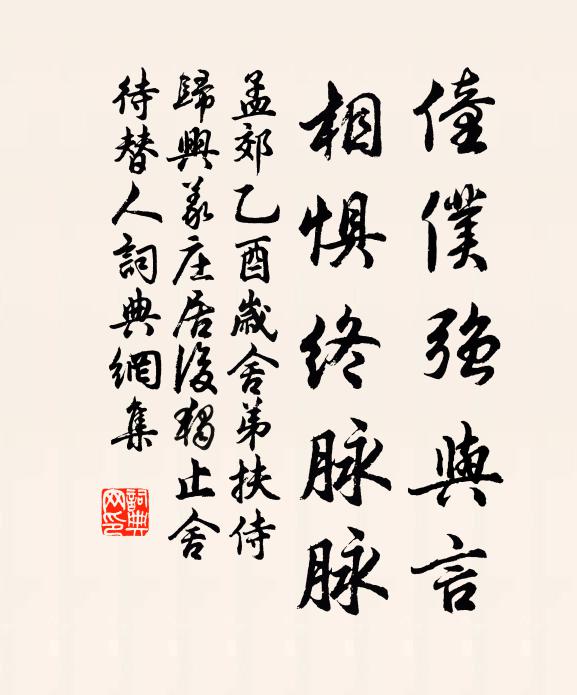 僮僕強與言
相懼終脉脉
孟郊乙酉歲舍弟扶侍
歸興義庄居後獨止舍
待替人詞典網集
詞典网印